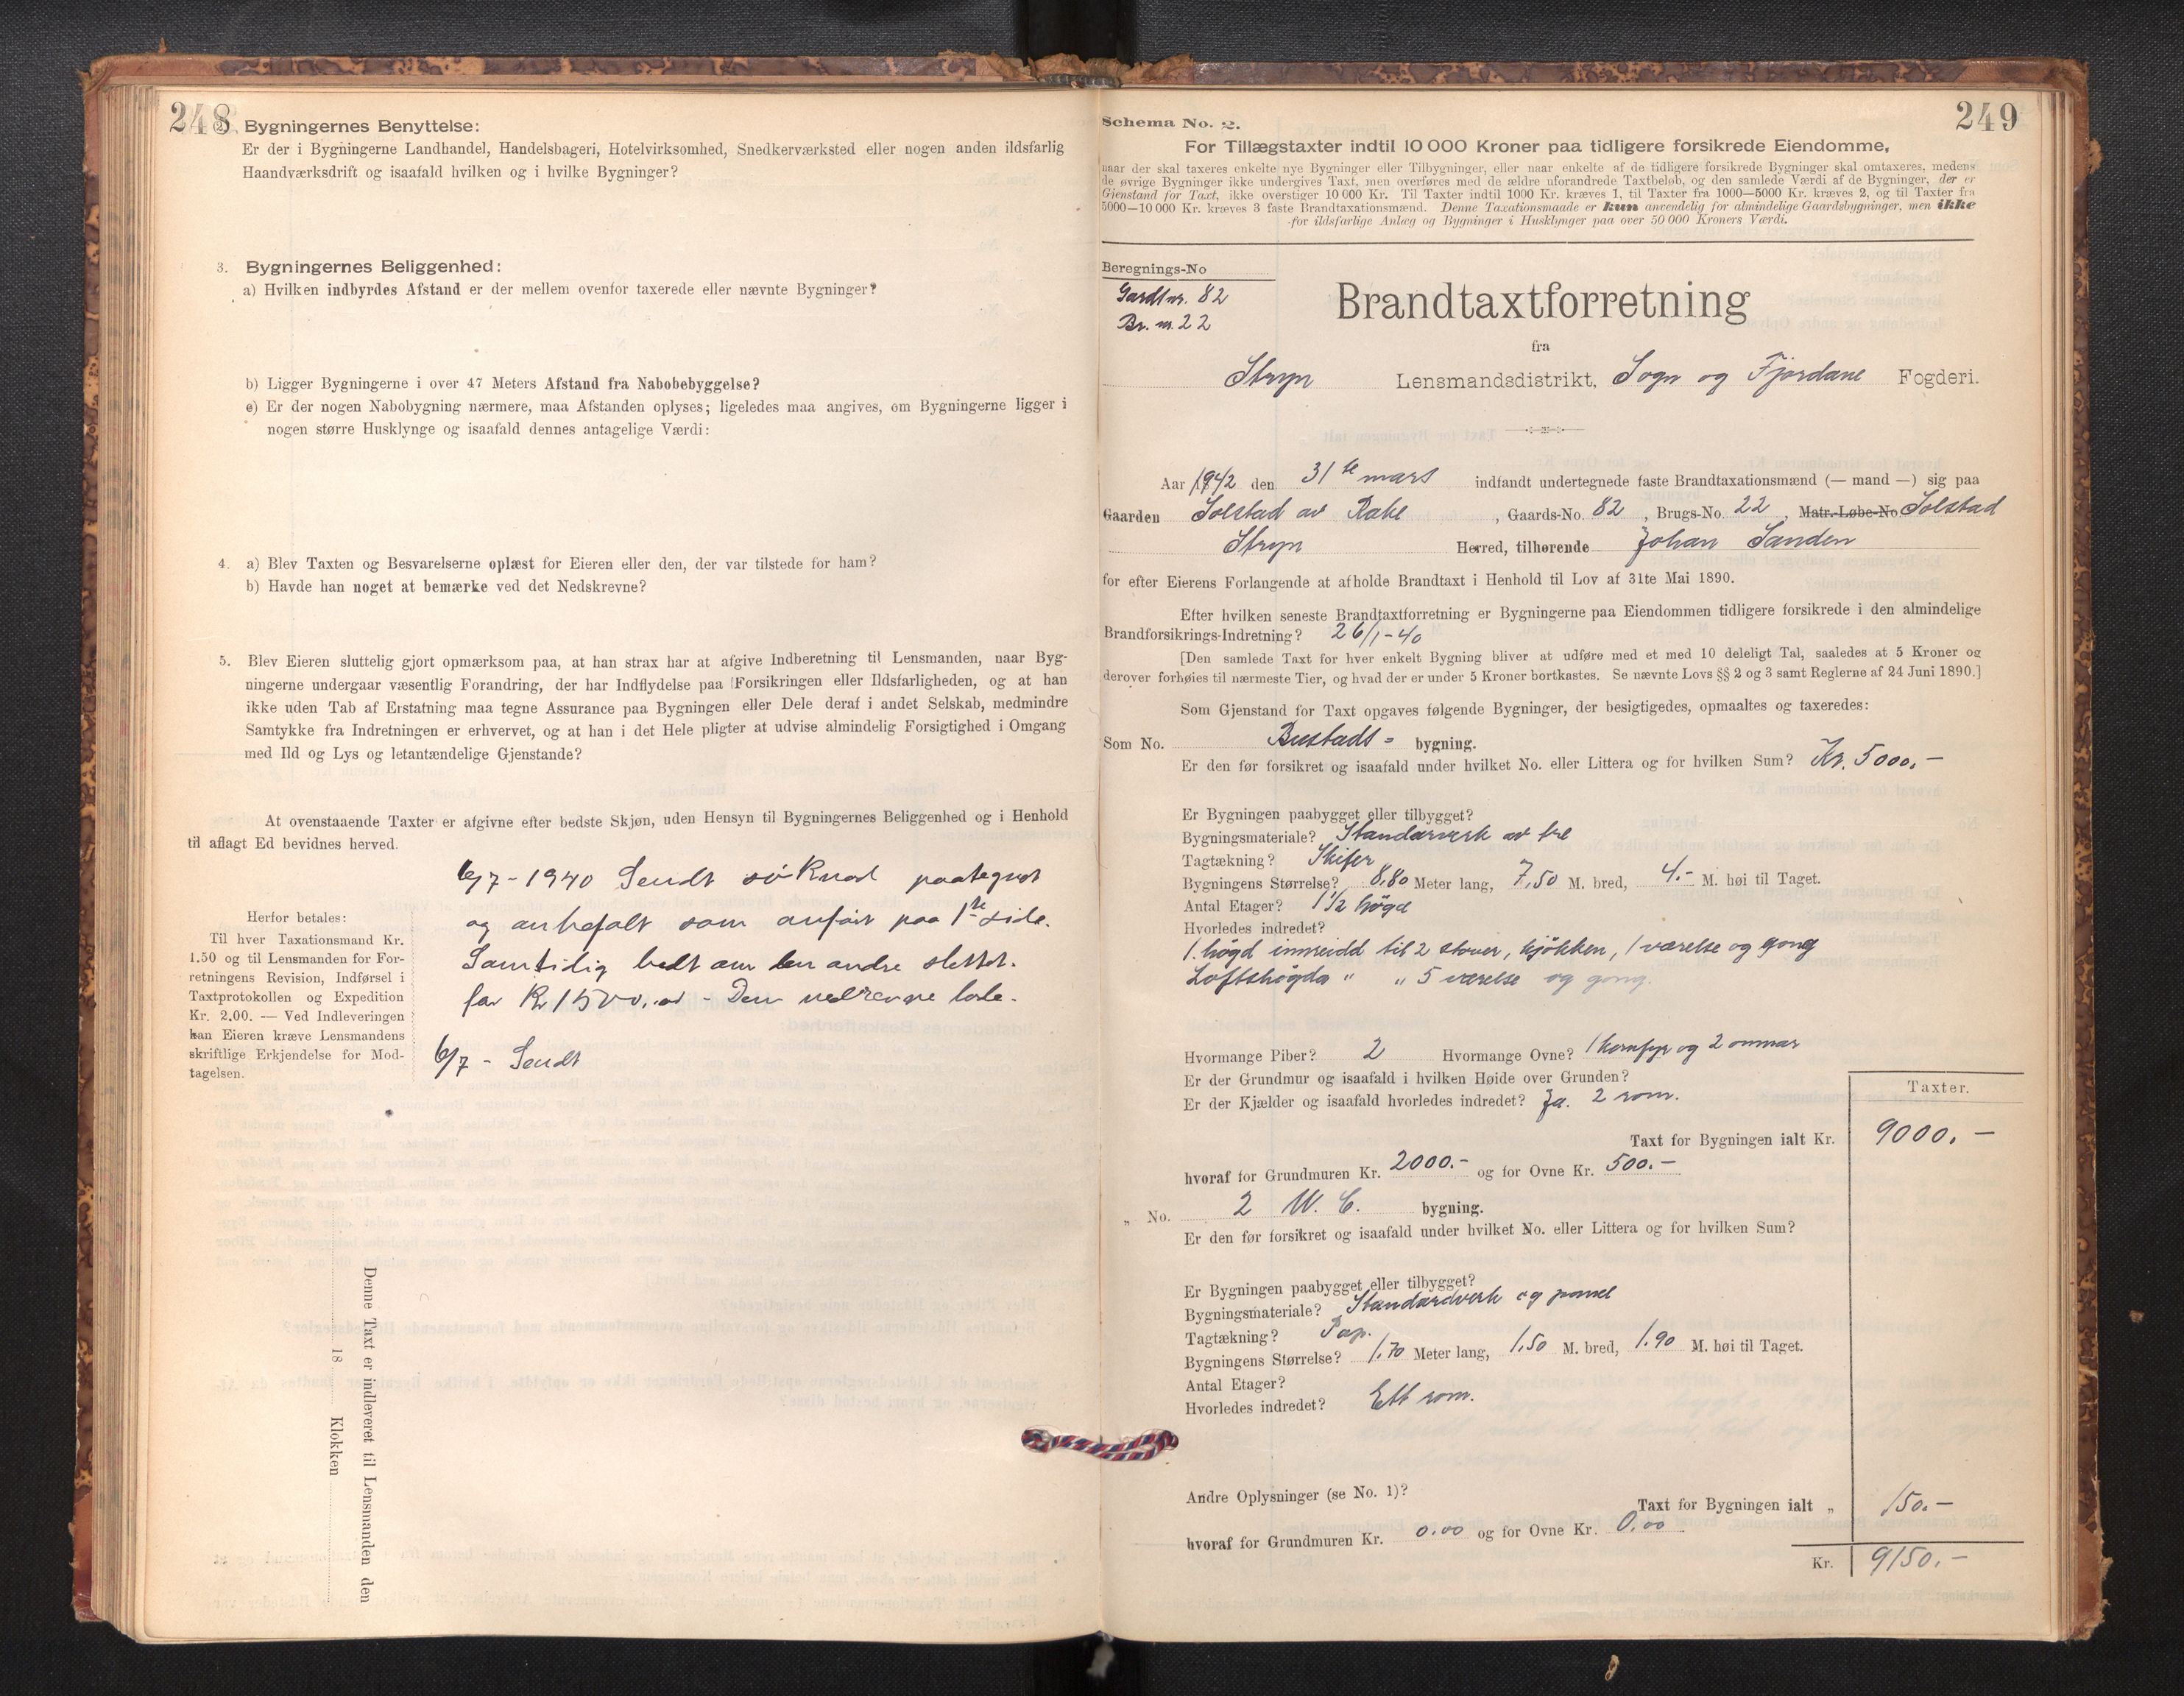 248
2. Bygningernes Benyttelse:
Er der i Bygningerne Landhandel, Handelsbageri, Hotelvirksomhed, Snedkerværksted eller nogen anden ildsfarlig
Haandværksdrift og isaafald hvilken og i hvilke Bygninger?
3. Bygningernes Beliggenhed:
a) Hvilken indbyrdes Afstand er der mellem ovenfor taxerede eller nævnte Bygninger?
b) Ligger Bygningerne i over 47 Meters Afstand fra Nabobebyggelse?
c) Er der nogen Nabobygning nærmere, maa Afstanden oplyses; ligeledes maa angives, om Bygningerne ligger i
nogen større Husklynge og isaafald dennes antagelige Værdi:
4. a) Blev Taxten og Besvarelserne oplæst for Eieren eller den, der var tilstede for ham?
b) Havde han noget at bemærke ved det Nedskrevne?
5. Blev Eieren sluttelig gjort opmærksom paa, at han strax har at afgive Indberetning til Lensmanden, naar Byg-
ningerne undergaar væsentlig Forandring, der har Indflydelse paa Forsikringen eller Ildsfarligheden, og at han
ikke uden Tab af Erstatning maa tegne Assurance paa Bygningen eller Dele deraf i andet Selskab, medmindre
Samtykke fra Indretningen er erhvervet, og at han i det Hele pligter at udvise almindelig Forsigtighed i Omgang
med Ild og Lys og letantændelige Gjenstande?
At ovenstaaende Taxter er afgivne efter bedste Skjøn, uden Hensyn til Bygningernes Beliggenhed og i Henhold
til aflagt Ed bevidnes herved.
6/7-1940 Sendt søknad paategnet
og anbefalt som anført paa 1ste side.
Samtidig bedt om den andre slettet.
for Kr 1500,00 - Den nedrevne lode.
6/7 - Sendt
Herfor betales:
Til hver Taxationsmand Kr.
1.50 og til Lensmanden for For-
retningens Revision, Indførsel i
Taxtprotokollen og Expedition
Kr. 2.00. — Ved Indleveringen
kan Eieren kræve Lensmandens
skriftlige Erkjendelse for Mod-
tagelsen.
Denne Taxt er indleveret til Lensmanden den
18 Klokken
249
Schema No. 2.
For Tillægstaxter indtil 10 000 Kroner paa tidligere forsikrede Eiendomme,
naar der skal taxeres enkelte nye Bygninger eller Tilbygninger, eller naar enkelte af de tidligere forsikrede Bygninger skal omtaxeres, medens
de øvrige Bygninger ikke undergives Taxt, men overføres med de ældre uforandrede Taxtbeløb, og den samlede Værdi af de Bygninger, der er
Gjenstand for Taxt, ikke overstiger 10 000 Kr. Til Taxter indtil 1000 Kr. kræves 1, til Taxter fra 1000—5000 Kr. kræves 2, og til Taxter fra
5000—10 000 Kr. kræves 3 faste Brandtaxationsmænd. Denne Taxationsmaade er kun anvendelig for almindelige Gaardsbygninger, men ikke
for ildsfarlige Anlæg og Bygninger i Husklynger paa over 50 000 Kroners Værdi.
Beregnings-No
Gardsnr. 82
Br. nr. 22
Brandtaxtforretning
fra
Stryn Lensmandsdistrikt, Sogn og Fjordane Fogderi.
Aar 1942 den 31te mars indfandt undertegnede faste Brandtaxationsmænd (— mand —) sig paa
Gaarden Solstad av Rake, Gaards-No. 82, Brugs-No. 22, Matr.-Løbe-No Solstad
Stryn Herred, tilhørende Johan Sanden
for efter Eierens Forlangende at afholde Brandtaxt i Henhold til Lov af 31te Mai 1890.
Efter hvilken seneste Brandtaxtforretning er Bygningerne paa Eiendommen tidligere forsikrede i den almindelige
Brandforsikrings-Indretning? 26/1-40
[Den samlede Taxt for hver enkelt Bygning bliver at udføre med et med 10 deleligt Tal, saaledes at 5 Kroner og
derover forhøies til nærmeste Tier, og hvad der er under 5 Kroner bortkastes. Se nævnte Lovs §§ 2 og 3 samt Reglerne af 24 Juni 1890.]
Som Gjenstand for Taxt opgaves følgende Bygninger, der besigtigedes, opmaaltes og taxeredes:
Som No. Bustads- bygning.
Er den før forsikret og isaafald under hvilket No. eller Littera og for hvilken Sum? Kr. 5000.-
Er Bygningen paabygget eller tilbygget?
Bygningsmateriale? Standarverk av tre
Tagtækning? Skifer
Bygningens Størrelse? 8,80 Meter lang, 7,50 M. bred, 4.- M. høi til Taget.
Antal Etager? 1 1/2 högd
Hvorledes indredet?
1. högd innreidd til 2 stover, kjökken, 1 værelse og gong
Loftshögda " " 5 værelse og gong.
Hvormange Piber? 2 Hvormange Ovne? 1 komfyr og 2 omnar
Er der Grundmur og isaafald i hvilken Høide over Grunden?
Er der Kjælder og isaafald hvorledes indredet? Ja. 2 rom.
Taxter.
Taxt for Bygningen ialt Kr. 9000.-
hvoraf for Grundmuren Kr. 2000.- og for Ovne Kr. 500.-
„ No. 2 W. C. bygning.
Er den før forsikret og isaafald under hvilket No. eller Littera og for hvilken Sum?
Er Bygningen paabygget eller tilbygget?
Bygningsmateriale? Standardverk og panel
Tagtækning? Pap.
Bygningens Størrelse? 1,70 Meter lang, 1,50 M. bred, 1.90 M. høi til Taget.
Antal Etager?
Hvorledes indredet? Ett rom.
Andre Oplysninger (se No. 1)?
Taxt for Bygningen ialt „ 150.-
hvoraf for Grundmuren Kr. 0.00 og for Ovne Kr. 0.00
Kr. 9150.-